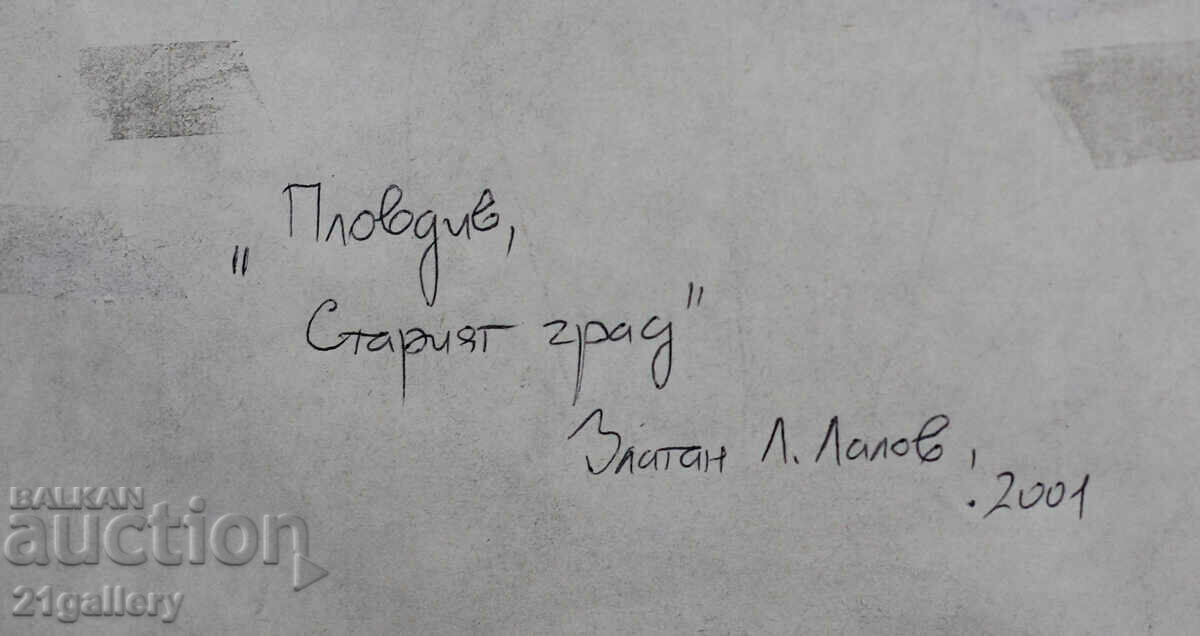 "Пловдив,
Старият град"
Златан Л. Лалов,
.2001
BALKAN
auction
21gallery